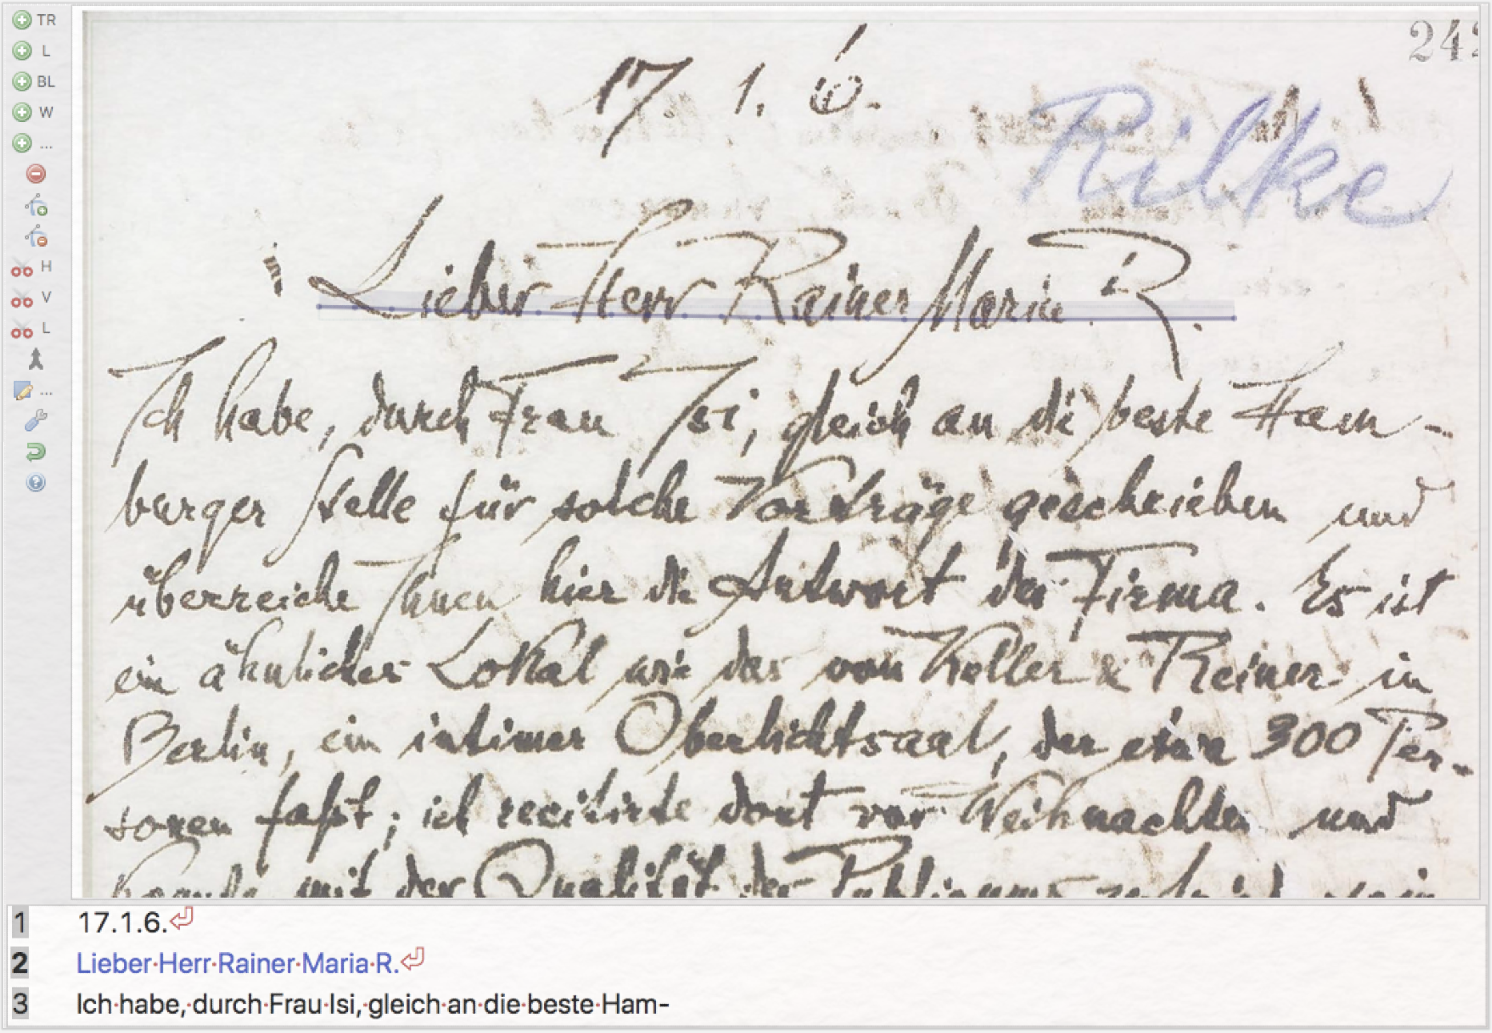 TR
L
BL
W
...
H
V
L
...
242
17. 1. 6.
Rilke
Lieber Herr Rainer Maria R.
Ich habe, durch Frau Isi, gleich an die beste Ham-
burger Stelle für solche Vorträge geschrieben und
überreiche Ihnen hier die Antwort der Firma. Es ist
ein ähnliches Lokal wie das von Keller & Reiner in
Berlin, ein intimer Oberlichtsaal, der etwa 300 Per-
sonen faßt; ich recitirte dort vor Weihnachten und
konnte mit der Qualität des Publicums zufrieden sein
1 17.1.6.
2 Lieber·Herr·Rainer·Maria·R.
3 Ich·habe,·durch·Frau·Isi,·gleich·an·die·beste·Ham-